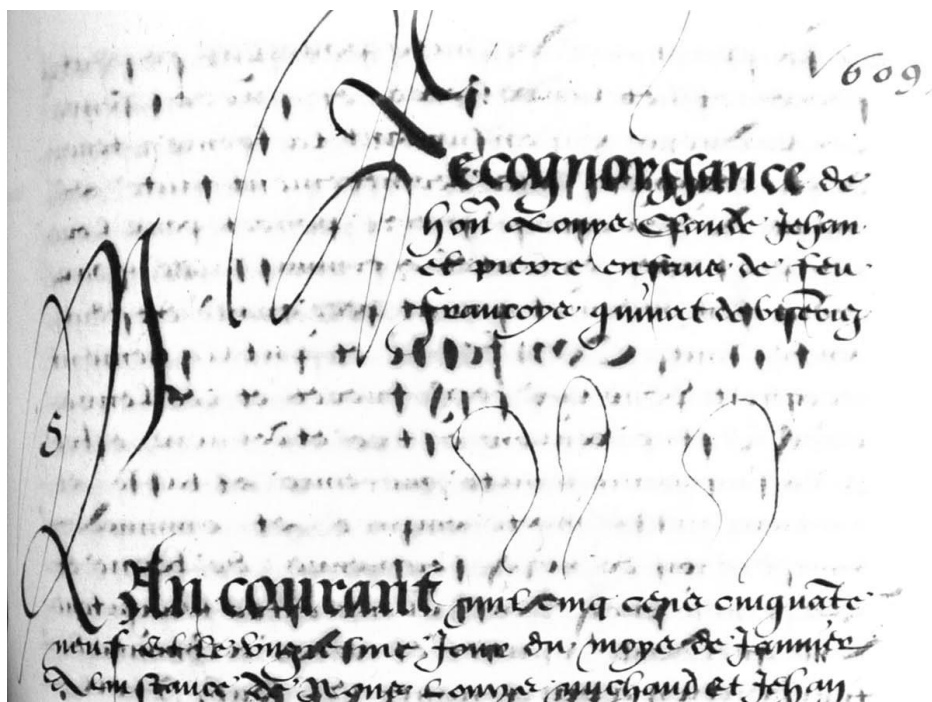 609
Recognoyssance de
hoñ Louys Claude Jehan
et pierre enfans de feu
francoys quinat de
5
An courant mil cinq cens cinquãte
neuf et le vingtiesme Jour du moys de Janvier
A linstance de Louys michaud et Jehan